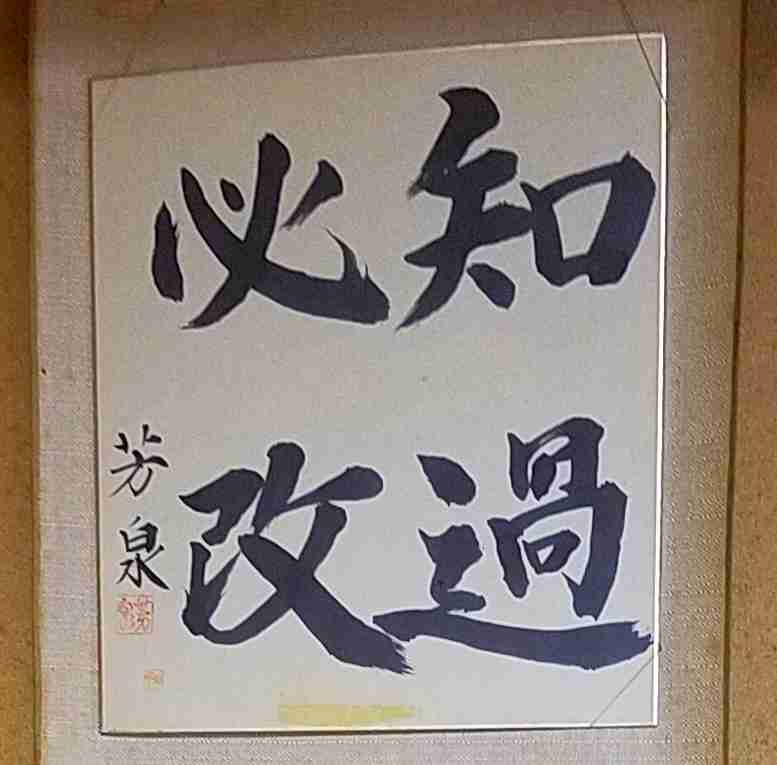 知過
必改
芳泉